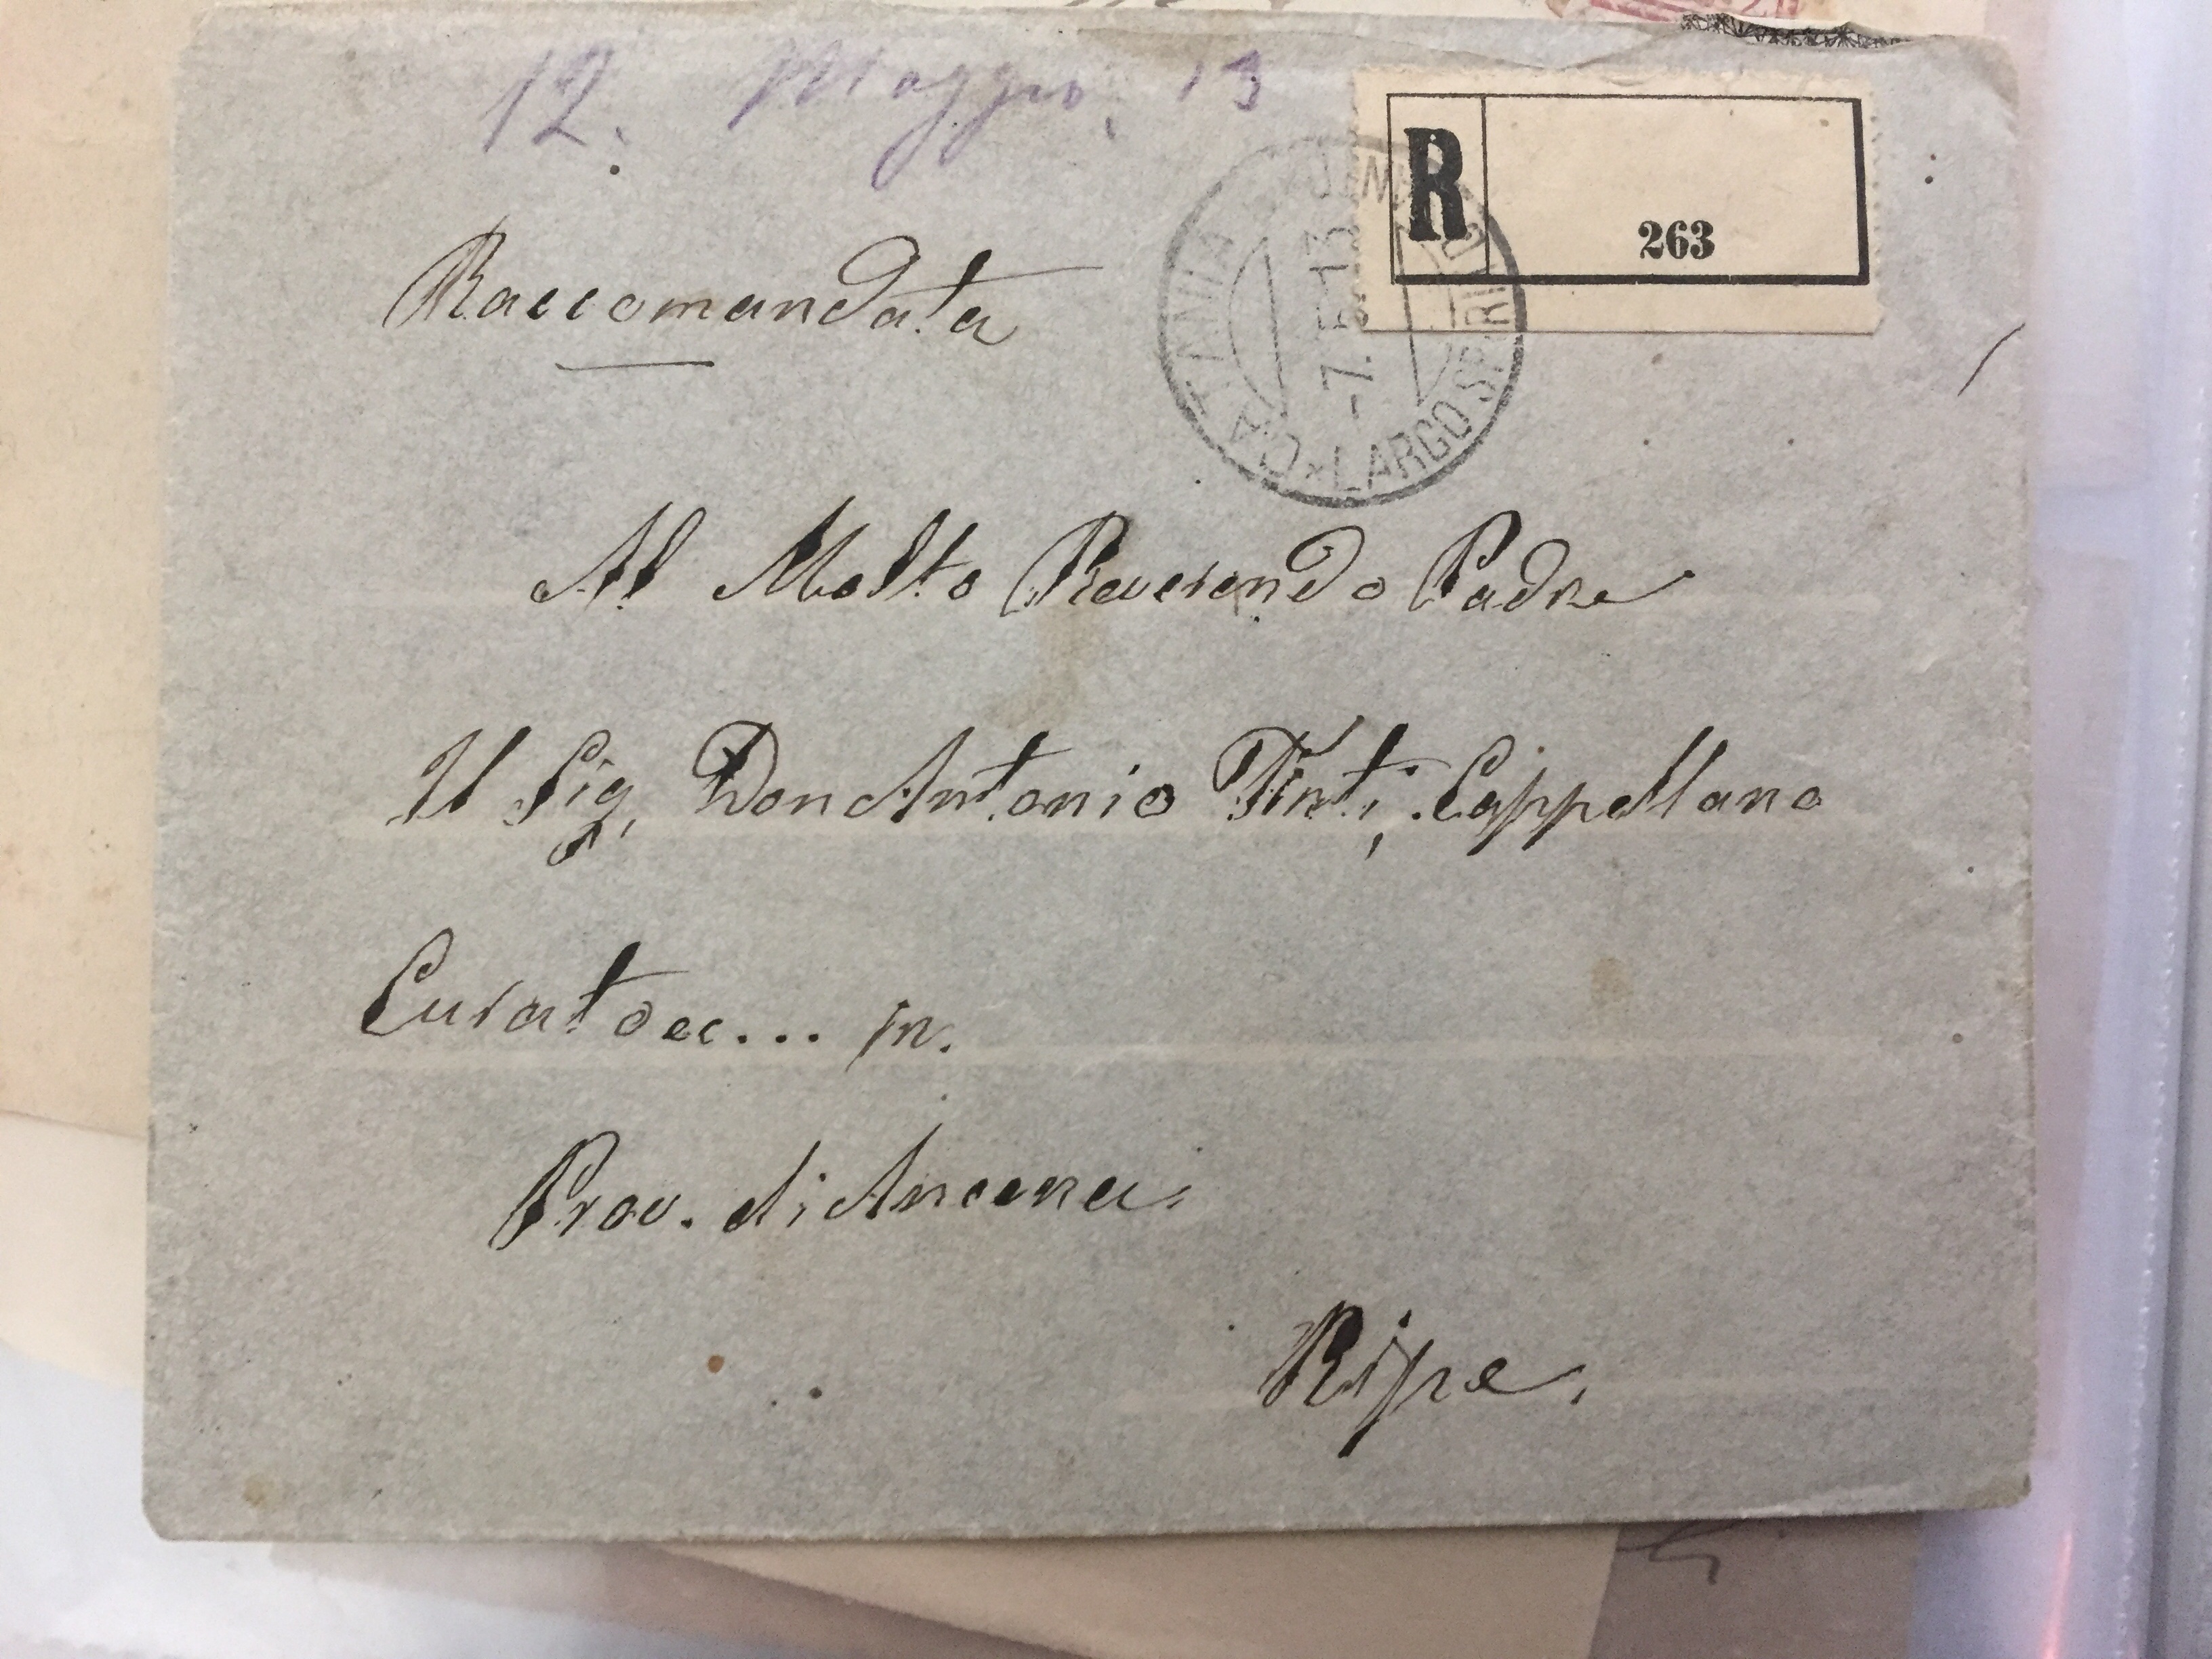 12. Maggio, 13
R
263
Raccomandata
CATANIA
-7.5-13
* LARGO SP.RITO
Al Molto Reverendo Padre
Il Sig. Don Antonio Tinti, Cappellano
Curato ec... in.
Prov. di Ancona.
Ripe.